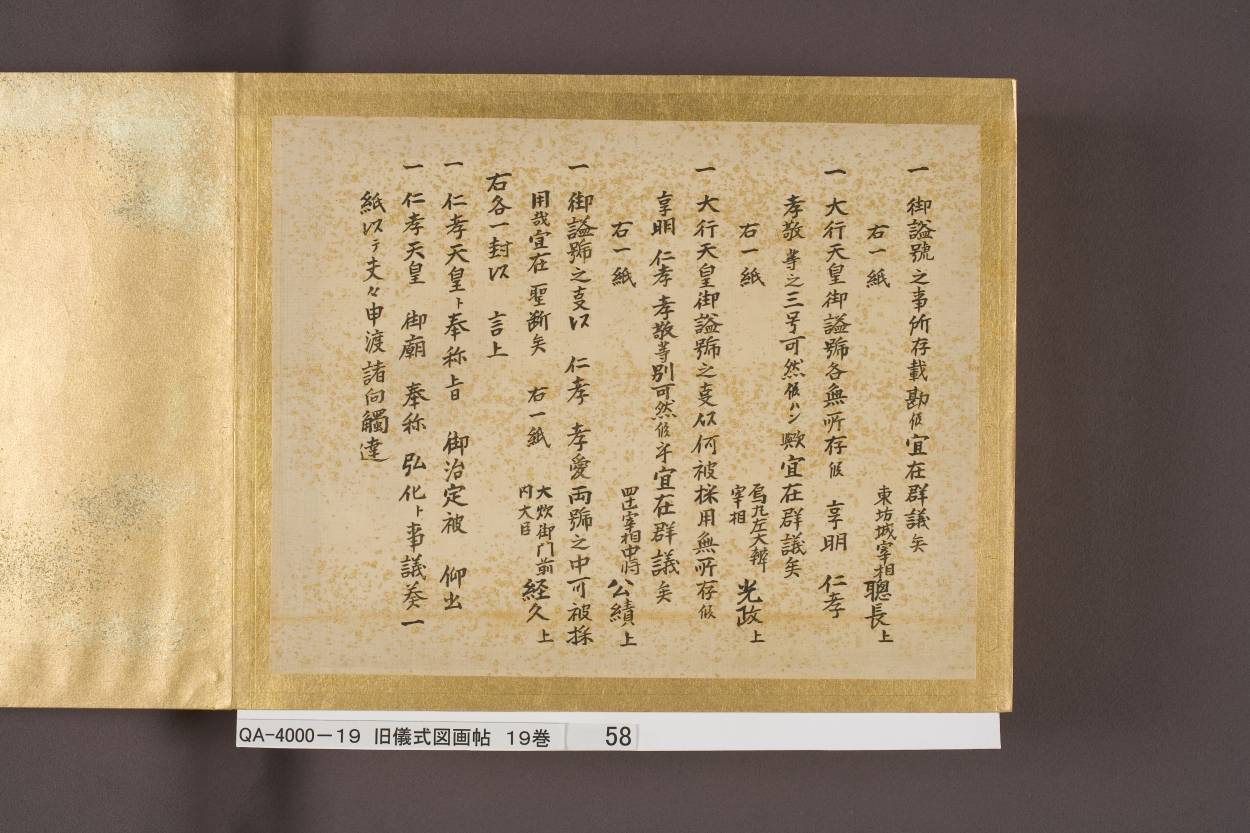 一 御諡號之事所存載勘候宜在群議矣
右一紙 東坊城宰相聰長上
一 大行天皇御諡號各無所存候 享明 仁孝
孝敬 等之三号可然候ハン歟宜在群議矣
右一紙 烏丸左大辨宰相 光政上
一 大行天皇御諡號之事以何被採用無所存候
享明 仁孝 孝敬等別可然候 宜在群議矣
右一紙 四辻宰相中将 公績上
一 御諡號之事以 仁孝 孝愛両號之中可被採
用哉宜在 聖断矣 右一紙 大炊御門前内大臣 経久上
右各一封以 言上
一 仁孝天皇ト奉称上旨 御治定被 仰出
一 仁孝天皇 御廟 奉称 弘化ト事議奏一
紙以テ夫々申渡諸向觸達
QA-4000-19 旧儀式図画帖 19巻 58